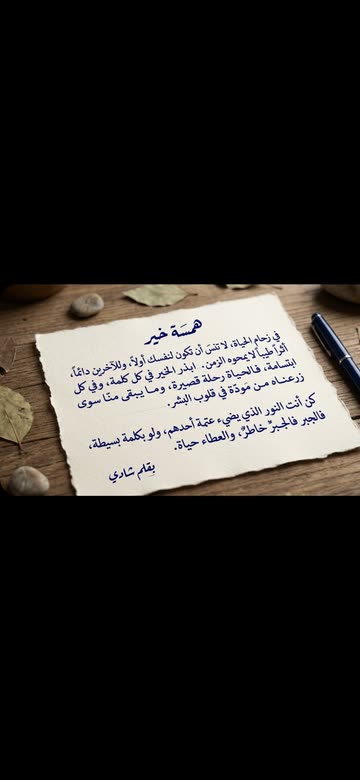 همسَة خير
في زحام الحياة، لا تنسَ أن تكون لنفسك أولاً، وللآخرين دائماً،
أثراً طيباً لا يمحوه الزمن. ابذر الخير في كل كلمة، وفي كل
ابتسامة، فالحياة رحلة قصيرة، وما يبقى منّا سوى
زرعناه من مَودّة في قلوب البشر.
كن أنت النور الذي يضيء عتمة أحدهم، ولو بكلمة بسيطة،
فالجبر فالجبرٌ خاطرٌ، والعطاء حياة.
بقلم شادي